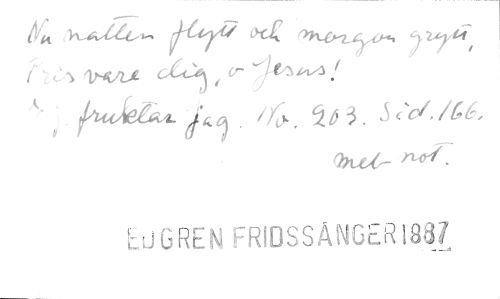 Nu natten flytt och morgon grytt,
Pris vare dig, o Jesus!
Ej fruktar jag. No. 203. Sid. 166.
med not.
EJGREN FRIDSSÅNGER 1887